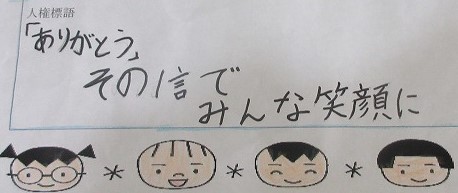 人権標語
「ありがとう」
その信で
みんな笑顔に